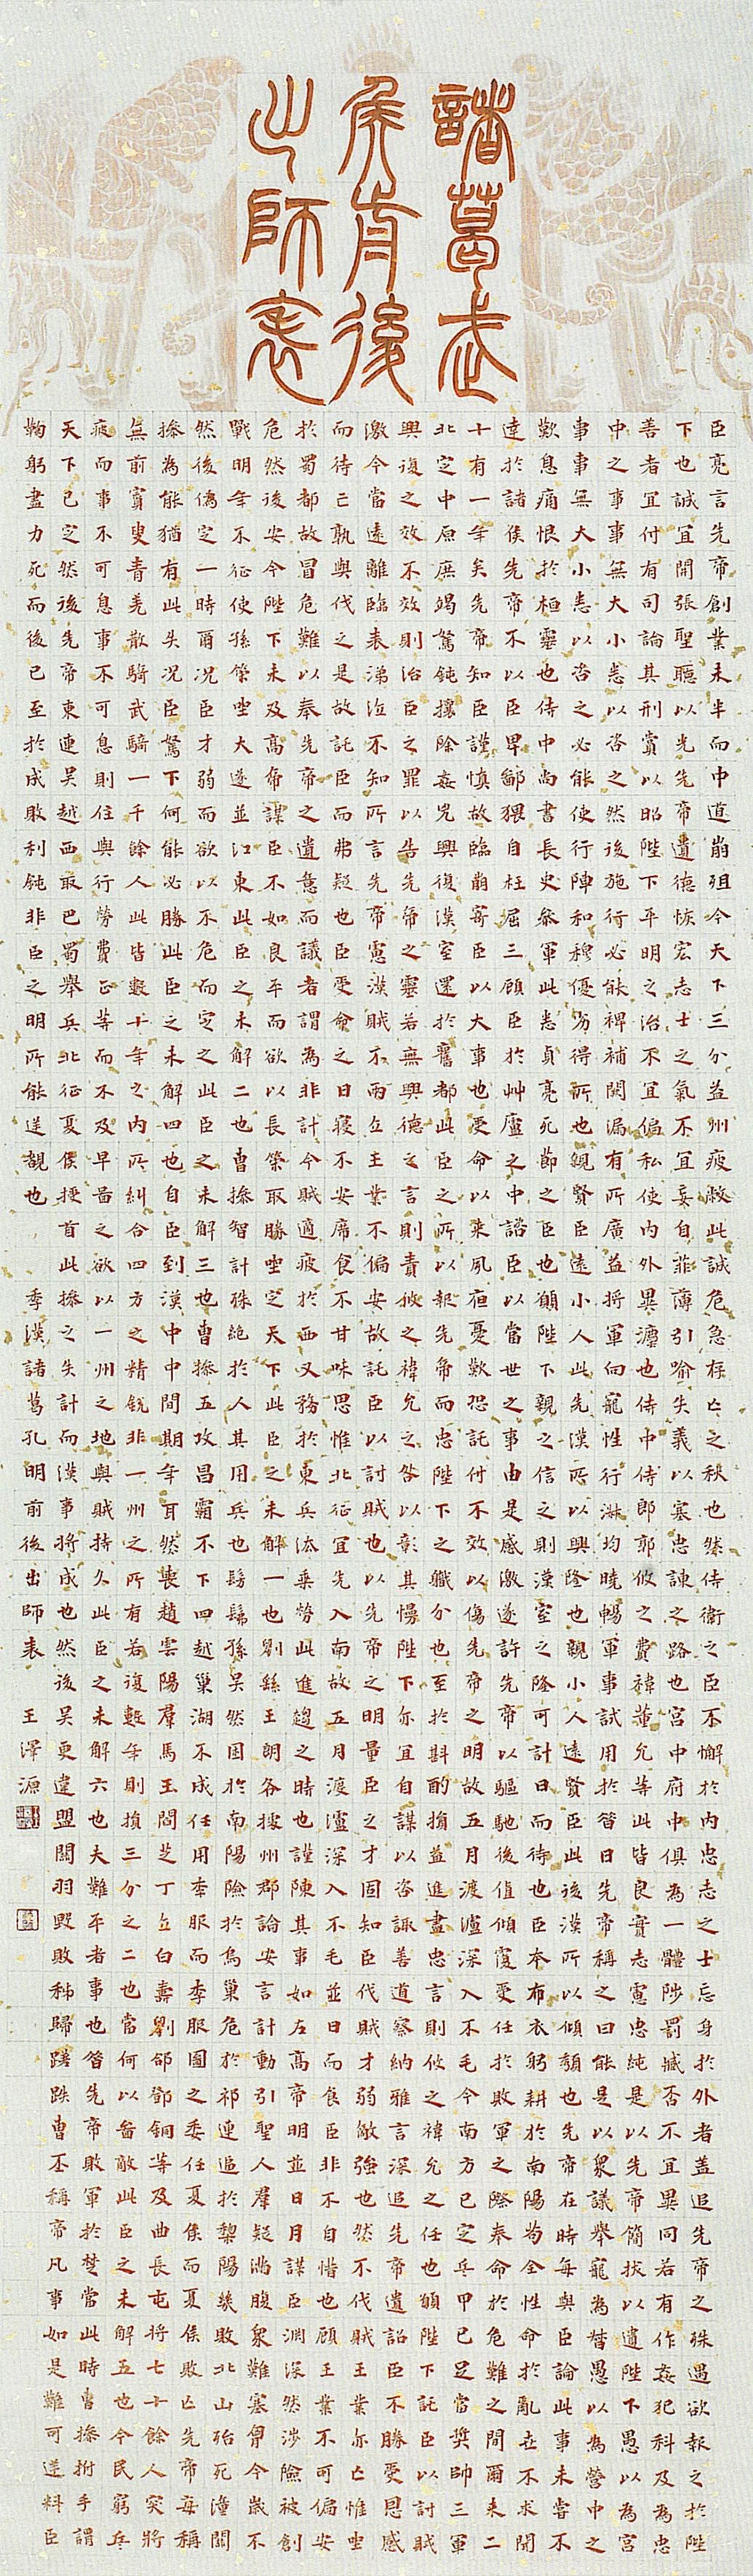 諸葛武
侯前後
出師表
臣亮言先帝創業未半而中道崩殂今天下三分益州疲敝此誠危急存亡之秋也然侍衛之臣不懈於內忠志之士忘身於外者蓋追先帝之殊遇欲報之於陛
下也誠宜開張聖聽以光先帝遺德恢宏志士之氣不宜妄自菲薄引喻失義以塞忠諫之路也宮中府中俱為一體陟罰臧否不宜異同若有作姦犯科及為忠
善者宜付有司論其刑賞以昭陛下平明之治不宜偏私使內外異灋也侍中侍郎郭攸之費禕董允等此皆良實志慮忠純是以先帝簡拔以遺陛下愚以為宮
中之事事無大小悉以咨之然後施行必能裨補闕漏有所廣益將軍向寵性行淑均曉暢軍事試用於昝日先帝稱之曰能是以眾議舉寵為督愚以為營中之
事事無大小悉以咨之必能使行陣和穆優劣得所也親賢臣遠小人此先漢所以興隆也親小人遠賢臣此後漢所以傾頹也先帝在時每與臣論此事未嘗不
歎息痛恨於桓靈也侍中尚書長史參軍此悉貞亮死節之臣也願陛下親之信之則漢室之隆可計日而待也臣本布衣躬耕於南陽苟全性命於亂世不求聞
達於諸侯先帝不以臣卑鄙猥自枉屈三顧臣於艸廬之中諮臣以當世之事由是感激遂許先帝以驅馳後值傾覆受任於敗軍之際奉命於危難之間爾來二
十有一年矣先帝知臣謹慎故臨崩寄臣以大事也受命以來夙夜憂歎恐託付不效以傷先帝之明故五月渡瀘深入不毛今南方已定兵甲已足當獎帥三軍
北定中原庶竭駑鈍攘除姦兇興復漢室還於舊都此臣之所以報先帝而忠陛下之職分也至於斟酌損益進盡忠言則攸之禕允之任也願陛下託臣以討賊
興復之效不效則治臣之罪以告先帝之靈若無興德之言則責攸之禕允之咎以彰其慢陛下亦宜自謀以咨諏善道察納雅言深追先帝遺詔臣不勝受恩感
激今當遠離臨表涕泣不知所言先帝慮漢賊不兩立王業不偏安故託臣以討賊也以先帝之明量臣之才固知臣代賊才弱敵強也然不代賊王業亦亡惟坐
而待亡孰與代之是故託臣而弗疑也臣受命之日寢不安席食不甘味思惟北征宜先入南故五月渡瀘深入不毛並日而食臣非不自惜也顧王業不可偏安
於蜀都故冒危難以奉先帝之遺意而議者謂為非計今賊適疲於西又務於東兵法乘勞此進趨之時也謹陳其事如左高帝明並日月謀臣淵深然涉險被創
危然後安今陛下未及高帝謀臣不如良平而欲以長策取勝坐定天下此臣之未解一也劉繇王朗各據州郡論安言計動引聖人羣疑滿腹眾難塞胷今歲不
戰明年不征使孫策坐大遂並江東此臣之未解二也曹操智計殊絕於人其用兵也髣髴孫吳然困於南陽險於烏巢危於祁連逼於黎陽幾敗北山殆死潼關
然後偽定一時爾況臣才弱而欲以不危而定之此臣之未解三也曹操五攻昌霸不下四越巢湖不成任用李服而李服圖之委任夏侯而夏侯敗亡先帝每稱
操為能猶有此失況臣駑下何能必勝此臣之未解四也自臣到漢中中間期年耳然喪趙雲陽羣馬玉閻芝丁立白壽劉郃鄧銅等及曲長屯將七十餘人突將
無前賨叟青羌散騎武騎一千餘人此皆數十年之內所糾合四方之精銳非一州之所有若復數年則損三分之二也當何以啚敵此臣之未解五也今民窮兵
疲而事不可息事不可息則住與行勞費正等而不及早啚之欲以一州之地與賊持久此臣之未解六也夫難平者事也昝先帝敗軍於楚當此時曹操拊手謂
天下已定然後先帝東連吳越西取巴蜀舉兵北征夏侯授首此操之失計而漢事將成也然後吳更違盟關羽毀敗秭歸蹉跌曹丕稱帝凡事如是難可逆料臣
鞠躬盡力死而後已至於成敗利鈍非臣之明所能逆覩也 季漢諸葛孔明前後出師表 王澤源